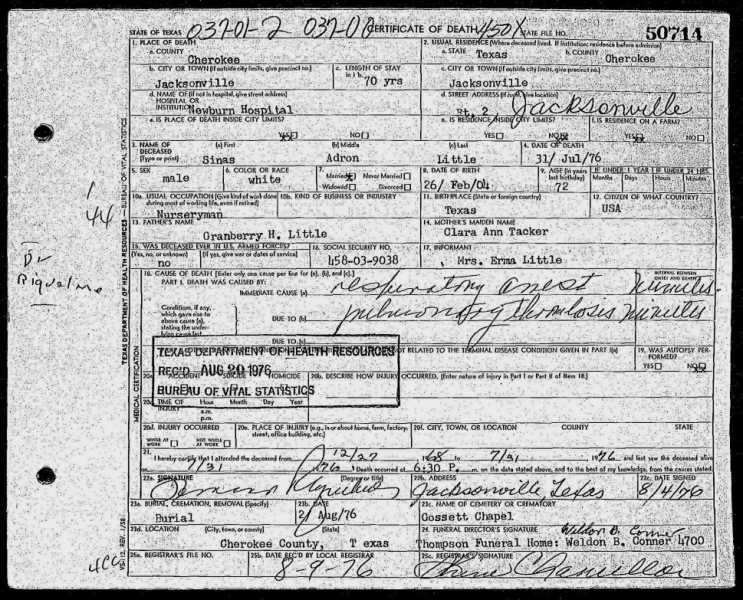 STATE OF TEXAS 037-01-2 037-01 CERTIFICATE OF DEATH 450X STATE FILE NO. 50714
1. PLACE OF DEATH
a. COUNTY
Cherokee
2. USUAL RESIDENCE (Where deceased lived. If institution: residence before admission)
a. STATE Texas b. COUNTY Cherokee
b. CITY OR TOWN (If outside city limits, give precinct no.)
Jacksonville
c. LENGTH OF STAY in 1 b.
70 yrs
c. CITY OR TOWN (If outside city limits, give precinct no.)
Jacksonville
d. NAME OF (If not in hospital, give street address)
HOSPITAL OR
INSTITUTION Newburn Hospital
d. STREET ADDRESS (If rural, give location)
Rt. 2 Jacksonville
e. IS PLACE OF DEATH INSIDE CITY LIMITS?
YES NO
e. IS RESIDENCE INSIDE CITY LIMITS?
YES NO
f. IS RESIDENCE ON A FARM?
YES NO
3. NAME OF DECEASED (Type or print)
(a) First (b) Middle (c) Last
Sinas Adron Little
4. DATE OF DEATH
31/ Jul/76
5. SEX
male
6. COLOR OR RACE
white
7. Married Never Married
Widowed Divorced
8. DATE OF BIRTH
26/ Feb/04
9. AGE (In years last birthday)
72
IF UNDER 1 YEAR IF UNDER 24 HRS.
Months Days Hours Minutes
10a. USUAL OCCUPATION (Give kind of work done during most of working life, even if retired)
Nurseryman
10b. KIND OF BUSINESS OR INDUSTRY
11. BIRTHPLACE (State or foreign country)
Texas
12. CITIZEN OF WHAT COUNTRY?
USA
13. FATHER'S NAME
Granberry H. Little
14. MOTHER'S MAIDEN NAME
Clara Ann Tacker
15. WAS DECEASED EVER IN U.S. ARMED FORCES?
(Yes, no, or unknown)
no
16. SOCIAL SECURITY NO.
458-03-9038
17. INFORMANT
Mrs. Erma Little
18. CAUSE OF DEATH [Enter only one cause per line for (a), (b), and (c).]
PART I. DEATH WAS CAUSED BY:
INTERVAL BETWEEN ONSET AND DEATH
IMMEDIATE CAUSE (a) respiratory arrest minutes
Condition, if any, which gave rise to above cause (a), stating the underlying cause last
DUE TO (b) pulmonary thrombosis minutes
DUE TO (c)
NOT RELATED TO THE TERMINAL DISEASE CONDITION GIVEN IN PART I(a)
19. WAS AUTOPSY PERFORMED?
YES NO
TEXAS DEPARTMENT OF HEALTH RESOURCES
REC'D AUG 20 1976
BUREAU OF VITAL STATISTICS
20a. ACCIDENT SUICIDE HOMICIDE
20b. DESCRIBE HOW INJURY OCCURRED. (Enter nature of injury in Part I or Part II of Item 18.)
20c. TIME OF INJURY
Hour Month Day Year
a.m.
p.m.
20d. INJURY OCCURRED
WHILE AT WORK NOT WHILE AT WORK
20e. PLACE OF INJURY (e.g., in or about home, farm, factory, street, office building, etc.)
20f. CITY, TOWN, OR LOCATION COUNTY STATE
21. I hereby certify that I attended the deceased from 12/27 1968 to 7/31 1976 and last saw the deceased alive
7/31 1976 Death occurred at 6:30 P. m. on the date stated above, and to the best of my knowledge, from the causes stated.
22a. SIGNATURE (Degree or title)
22b. ADDRESS
Jacksonville, Texas
22c. DATE SIGNED
8/4/76
23a. BURIAL, CREMATION, REMOVAL (Specify)
Burial
23b. DATE
2/ Aug/76
23c. NAME OF CEMETERY OR CREMATORY
Gossett Chapel
23d. LOCATION (City, town, or county) (State)
Cherokee County, T exas
24. FUNERAL DIRECTOR'S SIGNATURE Weldon B. Conner
Thompson Funeral Home: Weldon B. Conner 4700
25a. REGISTRAR'S FILE NO.
25b. DATE REC'D BY LOCAL REGISTRAR
8-9-76
25c. REGISTRAR'S SIGNATURE
TEXAS DEPARTMENT OF HEALTH RESOURCES — BUREAU OF VITAL STATISTICS
MEDICAL CERTIFICATION
VS-112, REV. 1/58
1
44
Dr